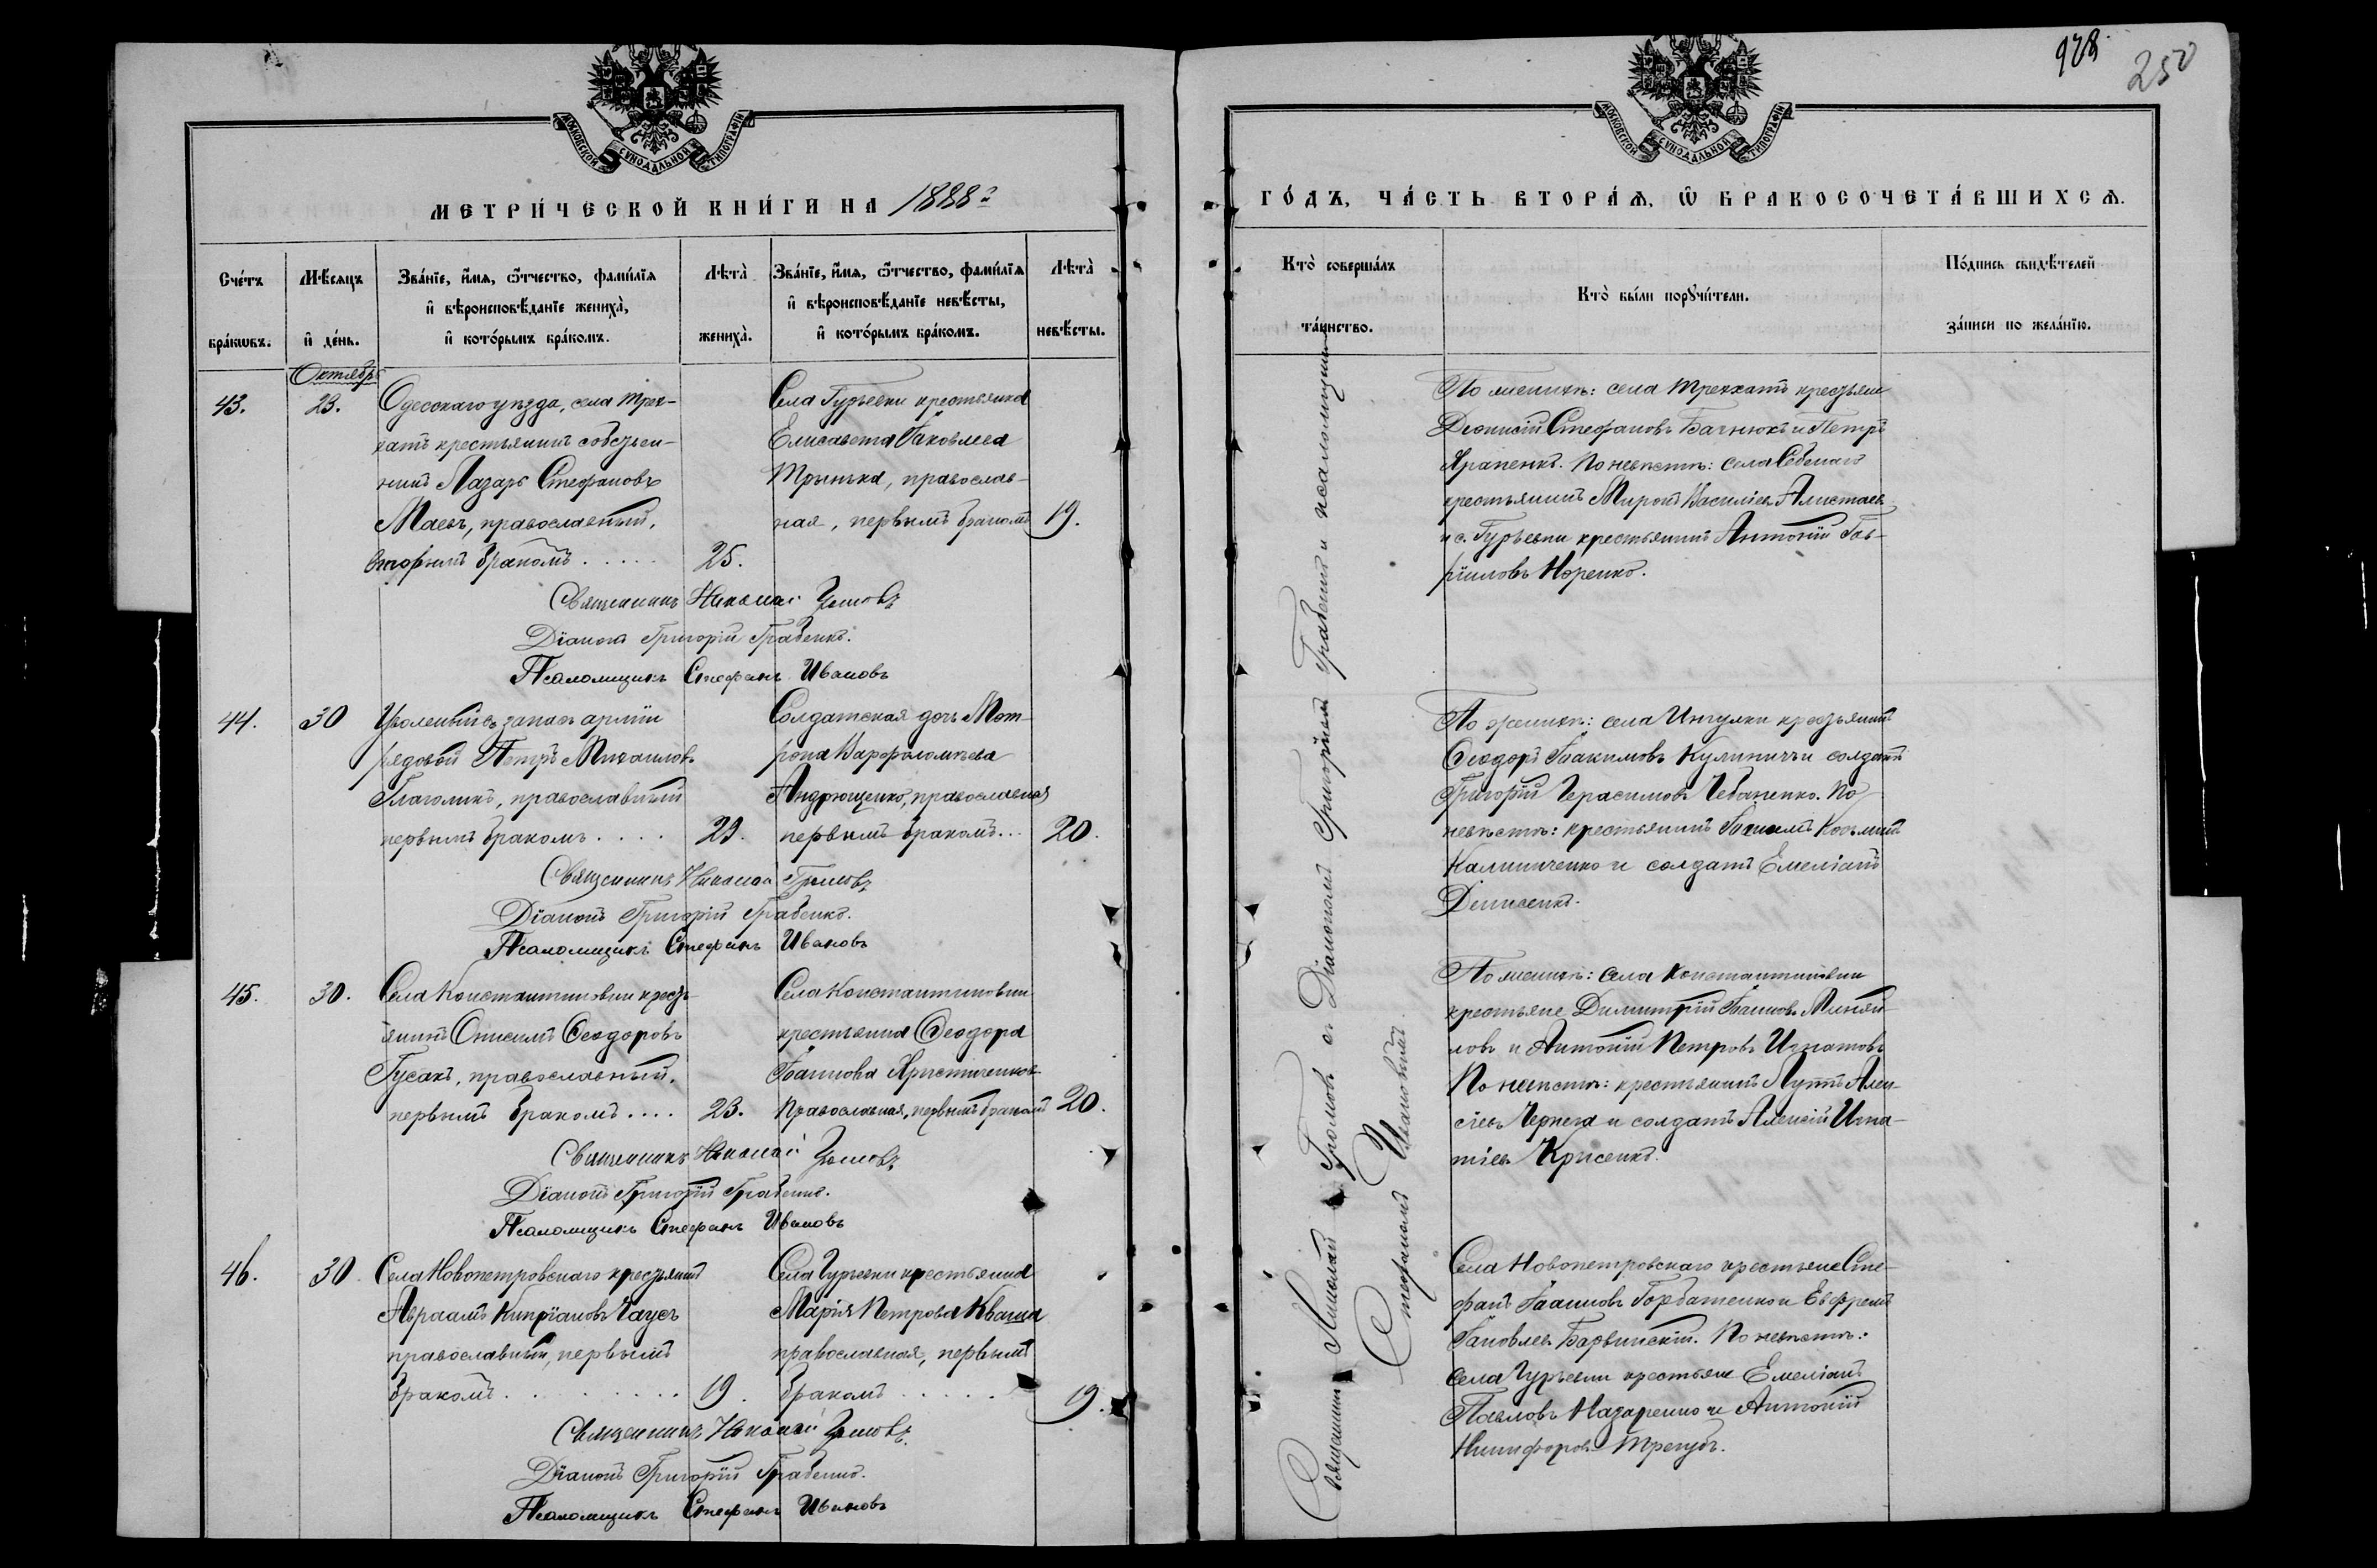 МОСКОВСКОЙ СѴНОДАЛЬНОЙ ТИПОГРАФІИ
МЕТРИ́ЧЕСКОЙ КНИ́ГИ НА 1888 г
Счетъ браковъ.
Мѣсяцъ и день.
Званіе, имя, отчество, фамилія и вѣроисповѣданіе жениха, и которымъ бракомъ.
Лѣта жениха.
Званіе, имя, отчество, фамилія и вѣроисповѣданіе невѣсты, и которымъ бракомъ.
Лѣта невѣсты.
Октябрь
43.
23.
Одесскаго уѣзда, села Трех-
хатъ крестьянинъ собствен-
никъ Лазарь Стефановъ
Маевъ, православный,
вторымъ бракомъ . . . . .
25.
Села Гурьевки крестьянка
Елисавета Іаковлева
Трынька, православ-
ная, первымъ бракомъ
19.
Священникъ Николай Громовъ
Діаконъ Григорій Грабенко.
Псаломщикъ Стефанъ Ивановъ
44.
30
Уволенный въ запасъ арміи
рядовой Петръ Михаиловъ
Глаголикъ, православный
первымъ бракомъ . . . .
29.
Солдатская дочь Мот-
рона Варфоломѣева
Андрющенко, православная
первымъ бракомъ ...
20.
Священникъ Николай Громовъ
Діаконъ Григорій Грабенко.
Псаломщикъ Стефанъ Ивановъ
45.
30.
Села Константиновки кресть-
янинъ Онисимъ Ѳеодоровъ
Гусакъ, православный,
первымъ бракомъ ....
23.
Села Константиновки
крестьянка Ѳеодора
Іоаннова Христиченкова
православная, первымъ бракомъ
20.
Священникъ Николай Громовъ
Діаконъ Григорій Грабенко.
Псаломщикъ Стефанъ Ивановъ
46.
30.
Села Новопетровскаго крестьянинъ
Авраамъ Кипріановъ Чаусъ
православный, первымъ
бракомъ . . . . . . . . .
19.
Села Гурьевки крестьянка
Марія Петрова Кваша
православная, первымъ
бракомъ . . . . .
19.
Священникъ Николай Громовъ
Діаконъ Григорій Грабенко.
Псаломщикъ Стефанъ Ивановъ
928
250
МОСКОВСКОЙ СѴНОДАЛЬНОЙ ТИПОГРАФІИ
ГО́ДЪ, ЧА́СТЬ ВТОРА́Я, Ѿ БРАКОСОЧЕТА́ВШИХСЯ.
Кто совершалъ таинство.
Кто были поручители.
Подпись свидѣтелей записи по желанію.
Священникъ Николай Громовъ съ Діакономъ Григоріемъ Грабенко и псаломщикомъ
Стефаномъ Ивановымъ.
По женихѣ: села Трехатъ крестьяне
Діонисій Стефановъ Багнюкъ и Петръ
Храпенко. По невѣстѣ: села Себинаго
крестьянинъ Миронъ Василіевъ
и с. Гурьевки крестьянинъ Антоній Гав-
ріиловъ Норенко.
По женихѣ: села Ингулки крестьянинъ
Ѳеодоръ Іоакимовъ Кулиничъ и солдатъ
Григорій Герасимовъ Чебаненко. По
невѣстѣ: крестьянинъ Козьминъ
Калиниченко и солдатъ Емеліанъ
Денисенко.
По женихѣ: села Константиновки
крестьяне Димитрій Іоанновъ Михай-
ловъ и Антоній Петровъ Игнатовъ
По невѣстѣ: крестьянинъ Луппъ Алек-
сіевъ Чернега и солдатъ Алексій Игна-
тіевъ Крисенко.
Села Новопетровскаго крестьяне Сте-
фанъ Іоанновъ Горбатенко и Евфремъ
Іаковлевъ Барвинскій. По невѣстѣ:
села Гурьевки крестьяне Емеліанъ
Павловъ Назаренко и Антоній
Никифоровъ Трегубъ.